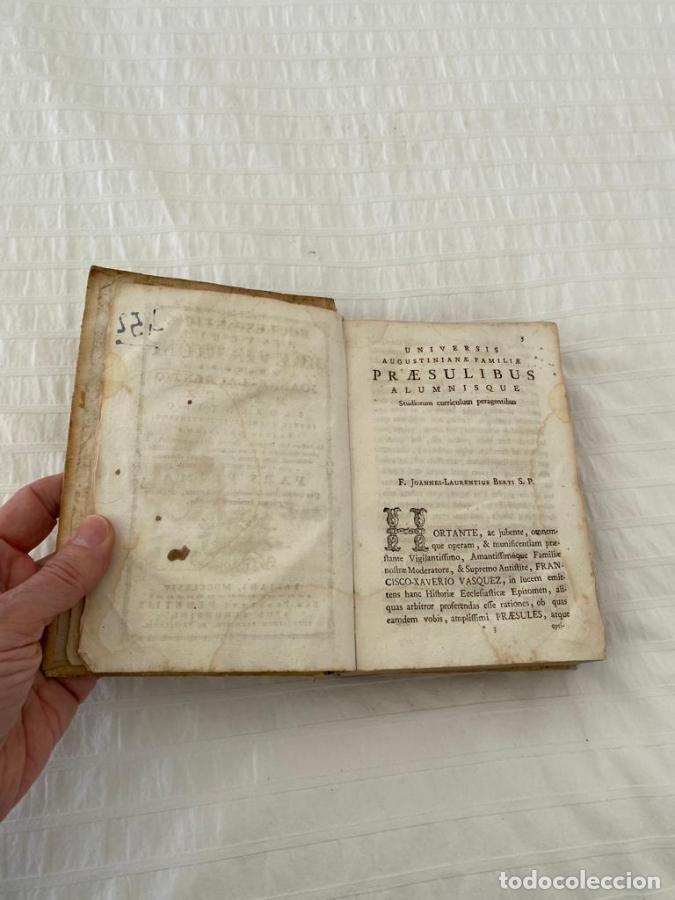 452
3
UNIVERSIS
AUGUSTINIANÆ FAMILIÆ
PRÆSULIBUS
ALUMNISQUE
Studiorum curriculum peragentibus
F. JOANNES-LAURENTIUS BERTI S. P.
HORTANTE, ac jubente, omnem-
que operam, & munificentiam præ-
stante Vigilantissimo, Amantissimoque Familiæ
nostræ Moderatore, & Supremo Antistite, FRAN-
CISCO-XAVERIO VASQUEZ, in lucem emit-
tens hanc Historiæ Ecclesiasticæ Epitomen, ali-
quas arbitror proferendas esse rationes, ob quas
eamdem vobis, amplissimi PRÆSULES, atque
3
opti-
todocoleccion